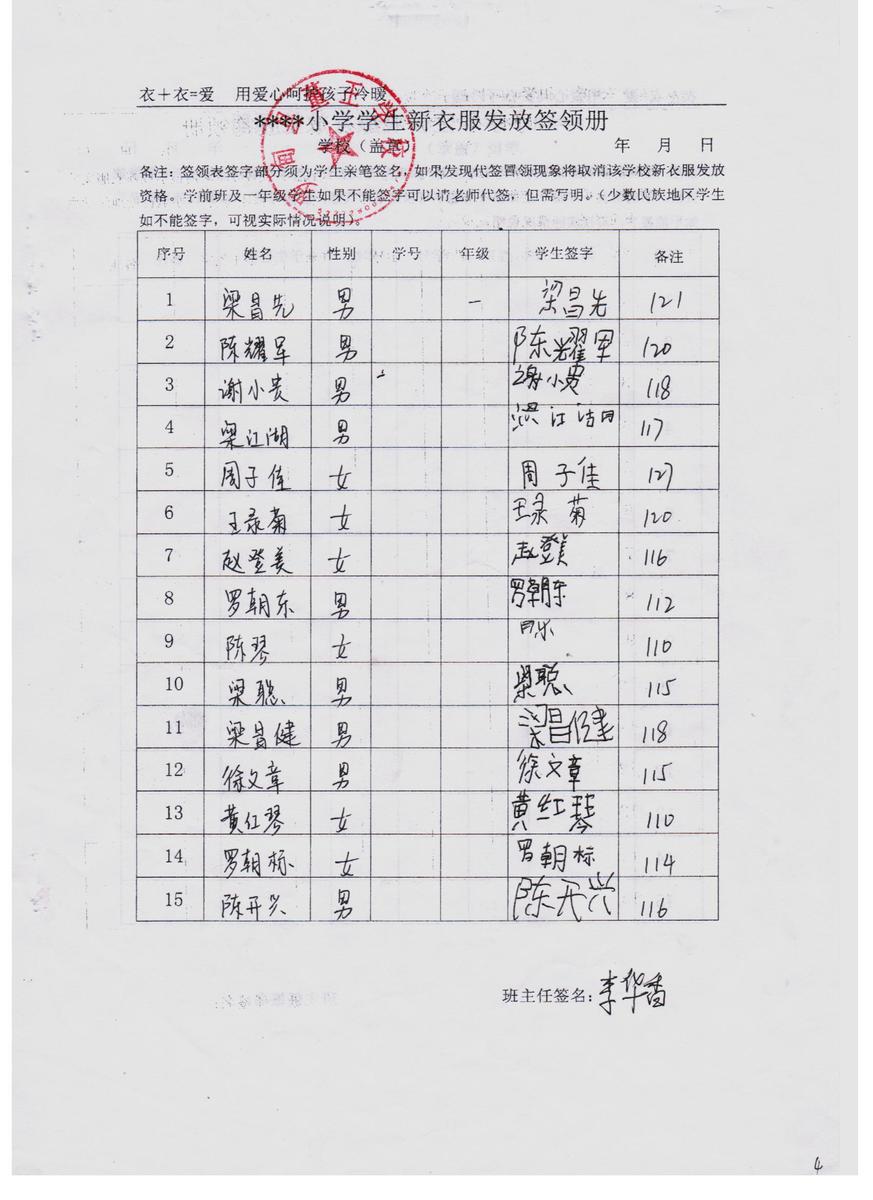 衣＋衣=爱 用爱心呵护孩子冷暖
****小学学生新衣服发放签领册
学校（盖章） 年 月 日
备注：签领表签字部分须为学生亲笔签名，如果发现代签冒领现象将取消该学校新衣服发放
资格。学前班及一年级学生如果不能签字可以请老师代签，但需写明。（少数民族地区学生
如不能签字，可视实际情况说明）。
序号 姓名 性别 学号 年级 学生签字 备注
1 梁昌先 男 一 梁昌先 121
2 陈耀军 男 陈耀军 120
3 谢小贵 男 谢小贵 118
4 梁江湖 男 梁江湖 117
5 周子佳 女 周子佳 127
6 王录菊 女 王录菊 120
7 赵登美 女 赵登美 116
8 罗朝东 男 罗朝东 112
9 陈琴 女 110
10 梁聪 男 梁聪 115
11 梁昌健 男 梁昌健 118
12 徐文章 男 徐文章 115
13 黄红琴 女 黄红琴 110
14 罗朝标 女 罗朝标 114
15 陈开兴 男 陈开兴 116
班主任签名：李华香
4